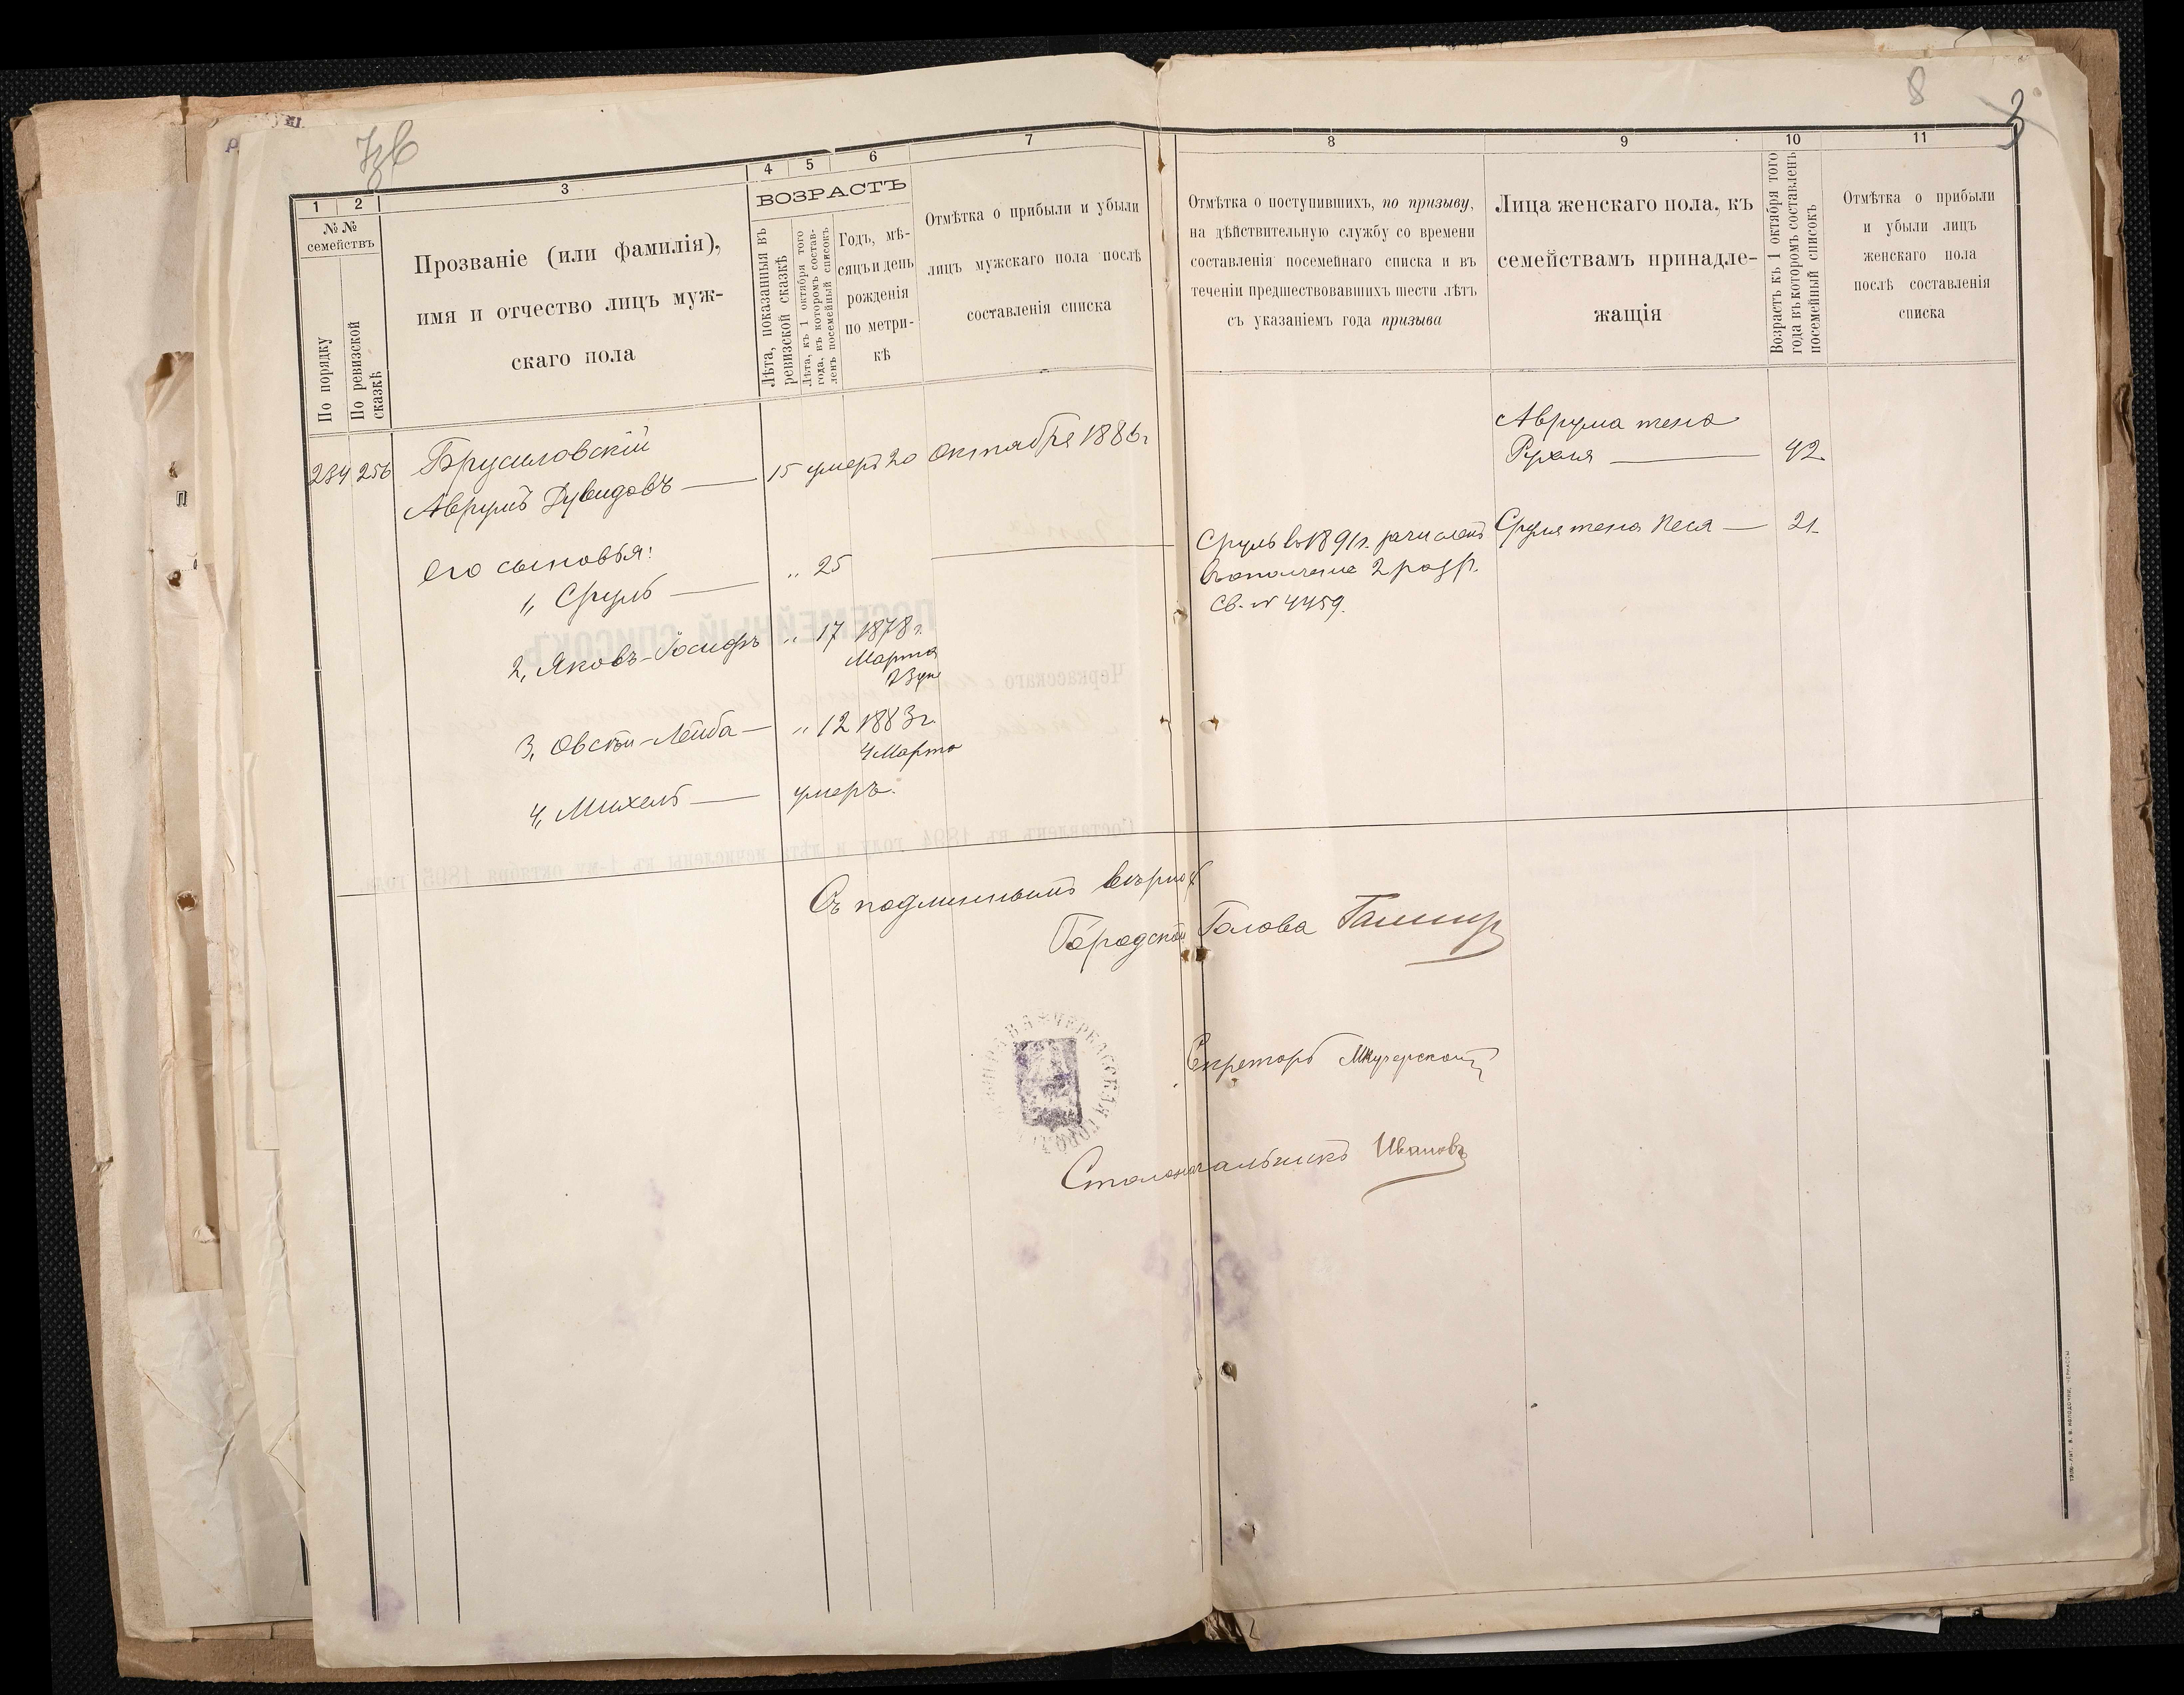 8
3
1 2 3 4 5 6 7
№ №
семействъ
По порядку
По ревизской сказкѣ
Прозваніе (или фамилія),
имя и отчество лицъ муж-
скаго пола
ВОЗРАСТЪ
Лѣта, показанныя въ
ревизской сказкѣ
Лѣта, къ 1 октября того
года, въ которомъ состав-
ленъ посемейный списокъ
Годъ, мѣ-
сяцъ и день
рожденія
по метри-
кѣ
Отмѣтка о прибыли и убыли
лицъ мужскаго пола послѣ
составленія списка
234 256 Брусиловскій
Аврумъ Дувидовъ — 15 умеръ 20 Октября 1886 г
Его сыновья:
1, Сруль — " 25
2, Яковъ-Іосифъ " 17 1878 г.
Марта
3, Овсѣй-Лейба — " 12 1883 г.
4 Марта
4, Михель — умеръ.
8 9 10 11
Отмѣтка о поступившихъ, по призыву,
на дѣйствительную службу со времени
составленія посемейнаго списка и въ
теченіи предшествовавшихъ шести лѣтъ
съ указаніемъ года призыва
Лица женскаго пола, къ
семействамъ принадле-
жащія
Возрастъ къ 1 октября того
года въ которомъ составленъ
посемейный списокъ
Отмѣтка о прибыли
и убыли лицъ
женскаго пола
послѣ составленія
списка
Аврума жена
Рухля — 42
Сруль въ 1891 г. зачисленъ
въ ополченіе 2 разр.
Св. № 4459.
Сруля жена Песя — 21
Съ подлиннымъ вѣрно:
Городской Голова
Секретарь
Столоначальникъ Ивановъ
ЧЕРКАССКАЯ ГОРОД